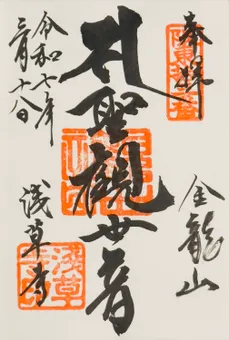 奉拝
聖観世音
金龍山
浅草寺
令和七年
三月十八日